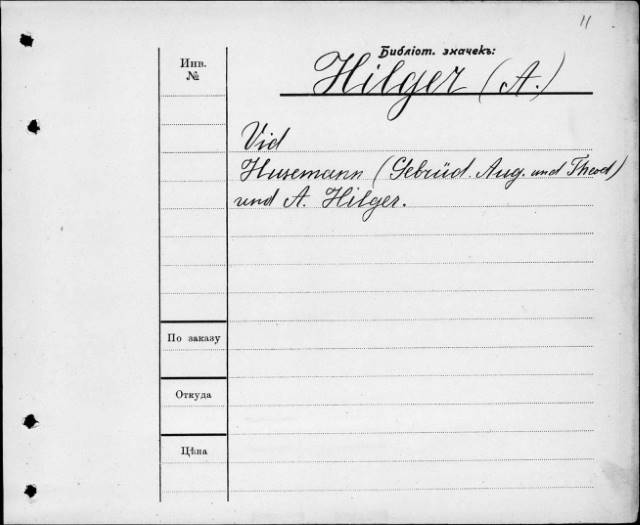 11
Библіот. значекъ:
Инв.
№
Hilger (A.)
Vid
Husemann (Gebrüd. Aug. und Theod)
und A. Hilger.
По заказу
Откуда
Цѣна